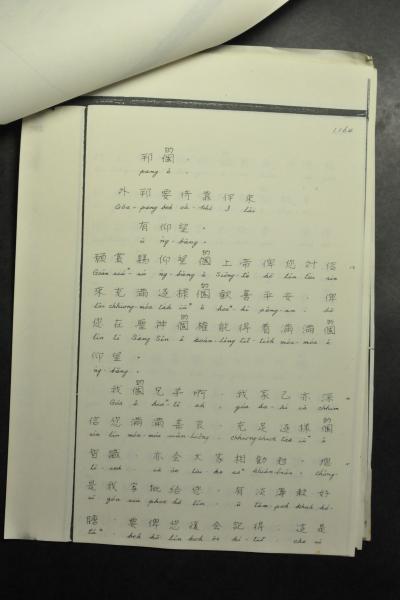 1164
邦個。
pang ê.
外邦要倚靠伊來
Gōa-pang beh oá-khò I lâi
有仰望。
ū ng-bāng.
願賞賜仰望個上帝俾您對信
Goān siúⁿ-sù ng-bāng ê Siōng-tè hō͘ lín tùi sìn
來充滿這樣個歡喜平安。俾
lâi chhiong-móa ê hoaⁿ-hí pêng-an. hō͘
您在聖神個權能得著滿滿個
lín tī Sèng Sîn ê koân-lêng tit-tio̍h móa-móa ê
仰望。
ng-bāng.
我個兄弟啊。我家己亦深
Góa ê hiaⁿ-tī ah, góa ka-kī ia̍h chhim
信您滿滿善良。充足這樣個
sìn lín móa-móa siān-liông. chhiong-chiok ê
智識。亦會大家相勸勉。總
tì-sek. ia̍h ōe tāi-ke saⁿ khoàn-bián. chóng
是我寫批給您。有淡薄較好
sī góa siá phoe hō͘ lín. ū tām-po̍h khah hó-
膽。要俾您復會記得。這是
táⁿ. beh hō͘ lín koh ōe kì-tit. che sī